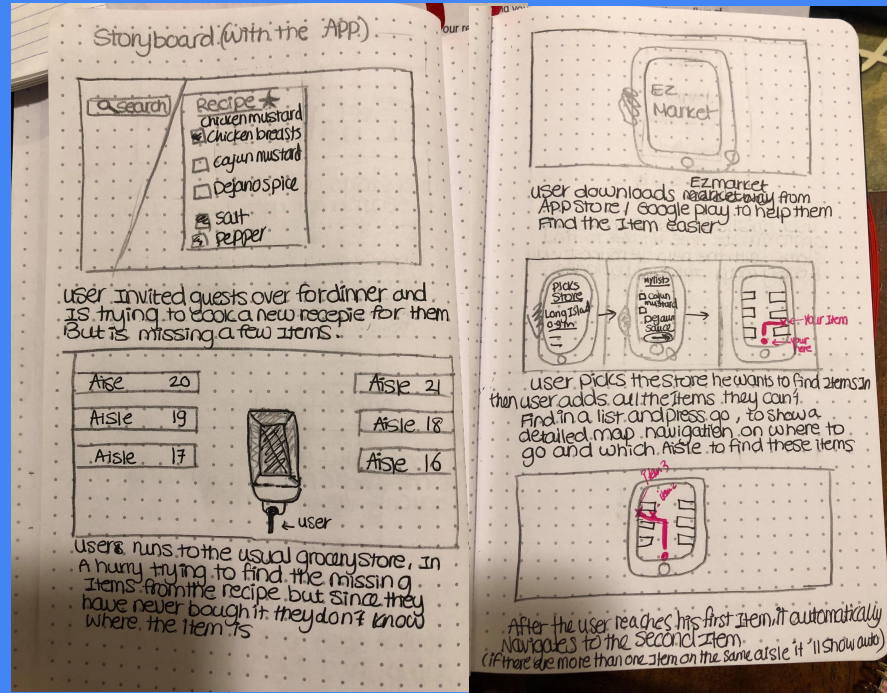 Storyboard (with the App)
search
Recipe
chicken mustard
chicken breasts
cajun mustard
Dejano spice
salt
pepper
user Invited guests over for dinner and
Is trying to cook a new recepie for them
But is missing a few Items.
Aise 20
Aisle 19
Aisle 17
Aisle 21
Aisle 18
Aisle 16
user
users runs to the usual grocery store, In
A hurry trying to find the missing
Items from the recipe but since they
have never bought it they don't know
where the item is
our re
Ez
Market
Ezmarket
user downloads from
App Store / Google play to help them
Find the Item easier
Picks
Store
Long Island
Mylists
Cajun
mustard
Dejaun
sauce
your Item
your
here
user picks the store he wants to find Items In
then user adds all the Items they can't
Find in a list and press go, to show a
detailed map navigation on where to
go and which Aisle to find these items
Item 3
After the user reaches his first Item, it automatically
Navigates to the second Item.
(if there are more than one Item on the same aisle it'll show auto)